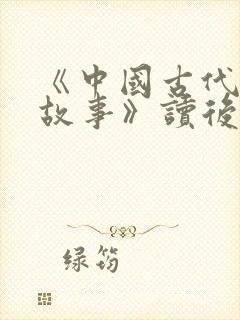 《中國古代
故事》讀後
绿筠